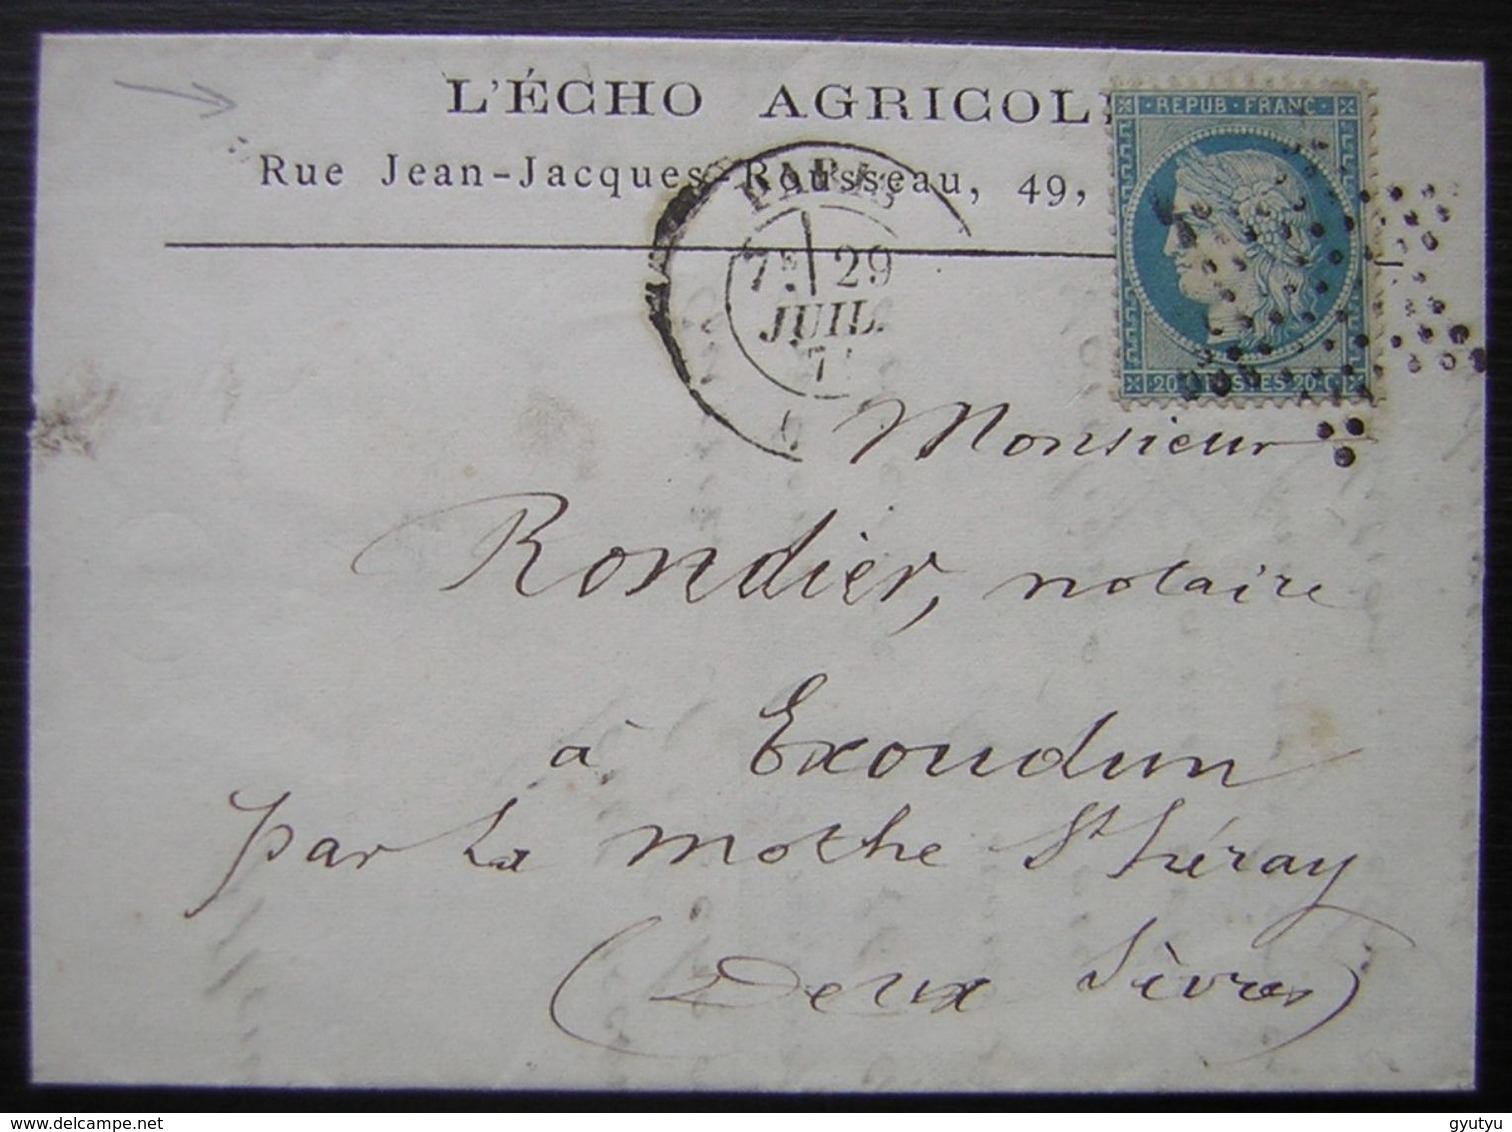 L'ÉCHO AGRICOL
REPUB·FRANC·
Rue Jean-Jacques-Rousseau, 49,
PARIS
7E 29
JUIL.
7
20·C POSTES 20·C
Monsieur
Rondier, notaire
à Exoudun
par La mothe St héray
(Deux Sèvres)
gyutyu